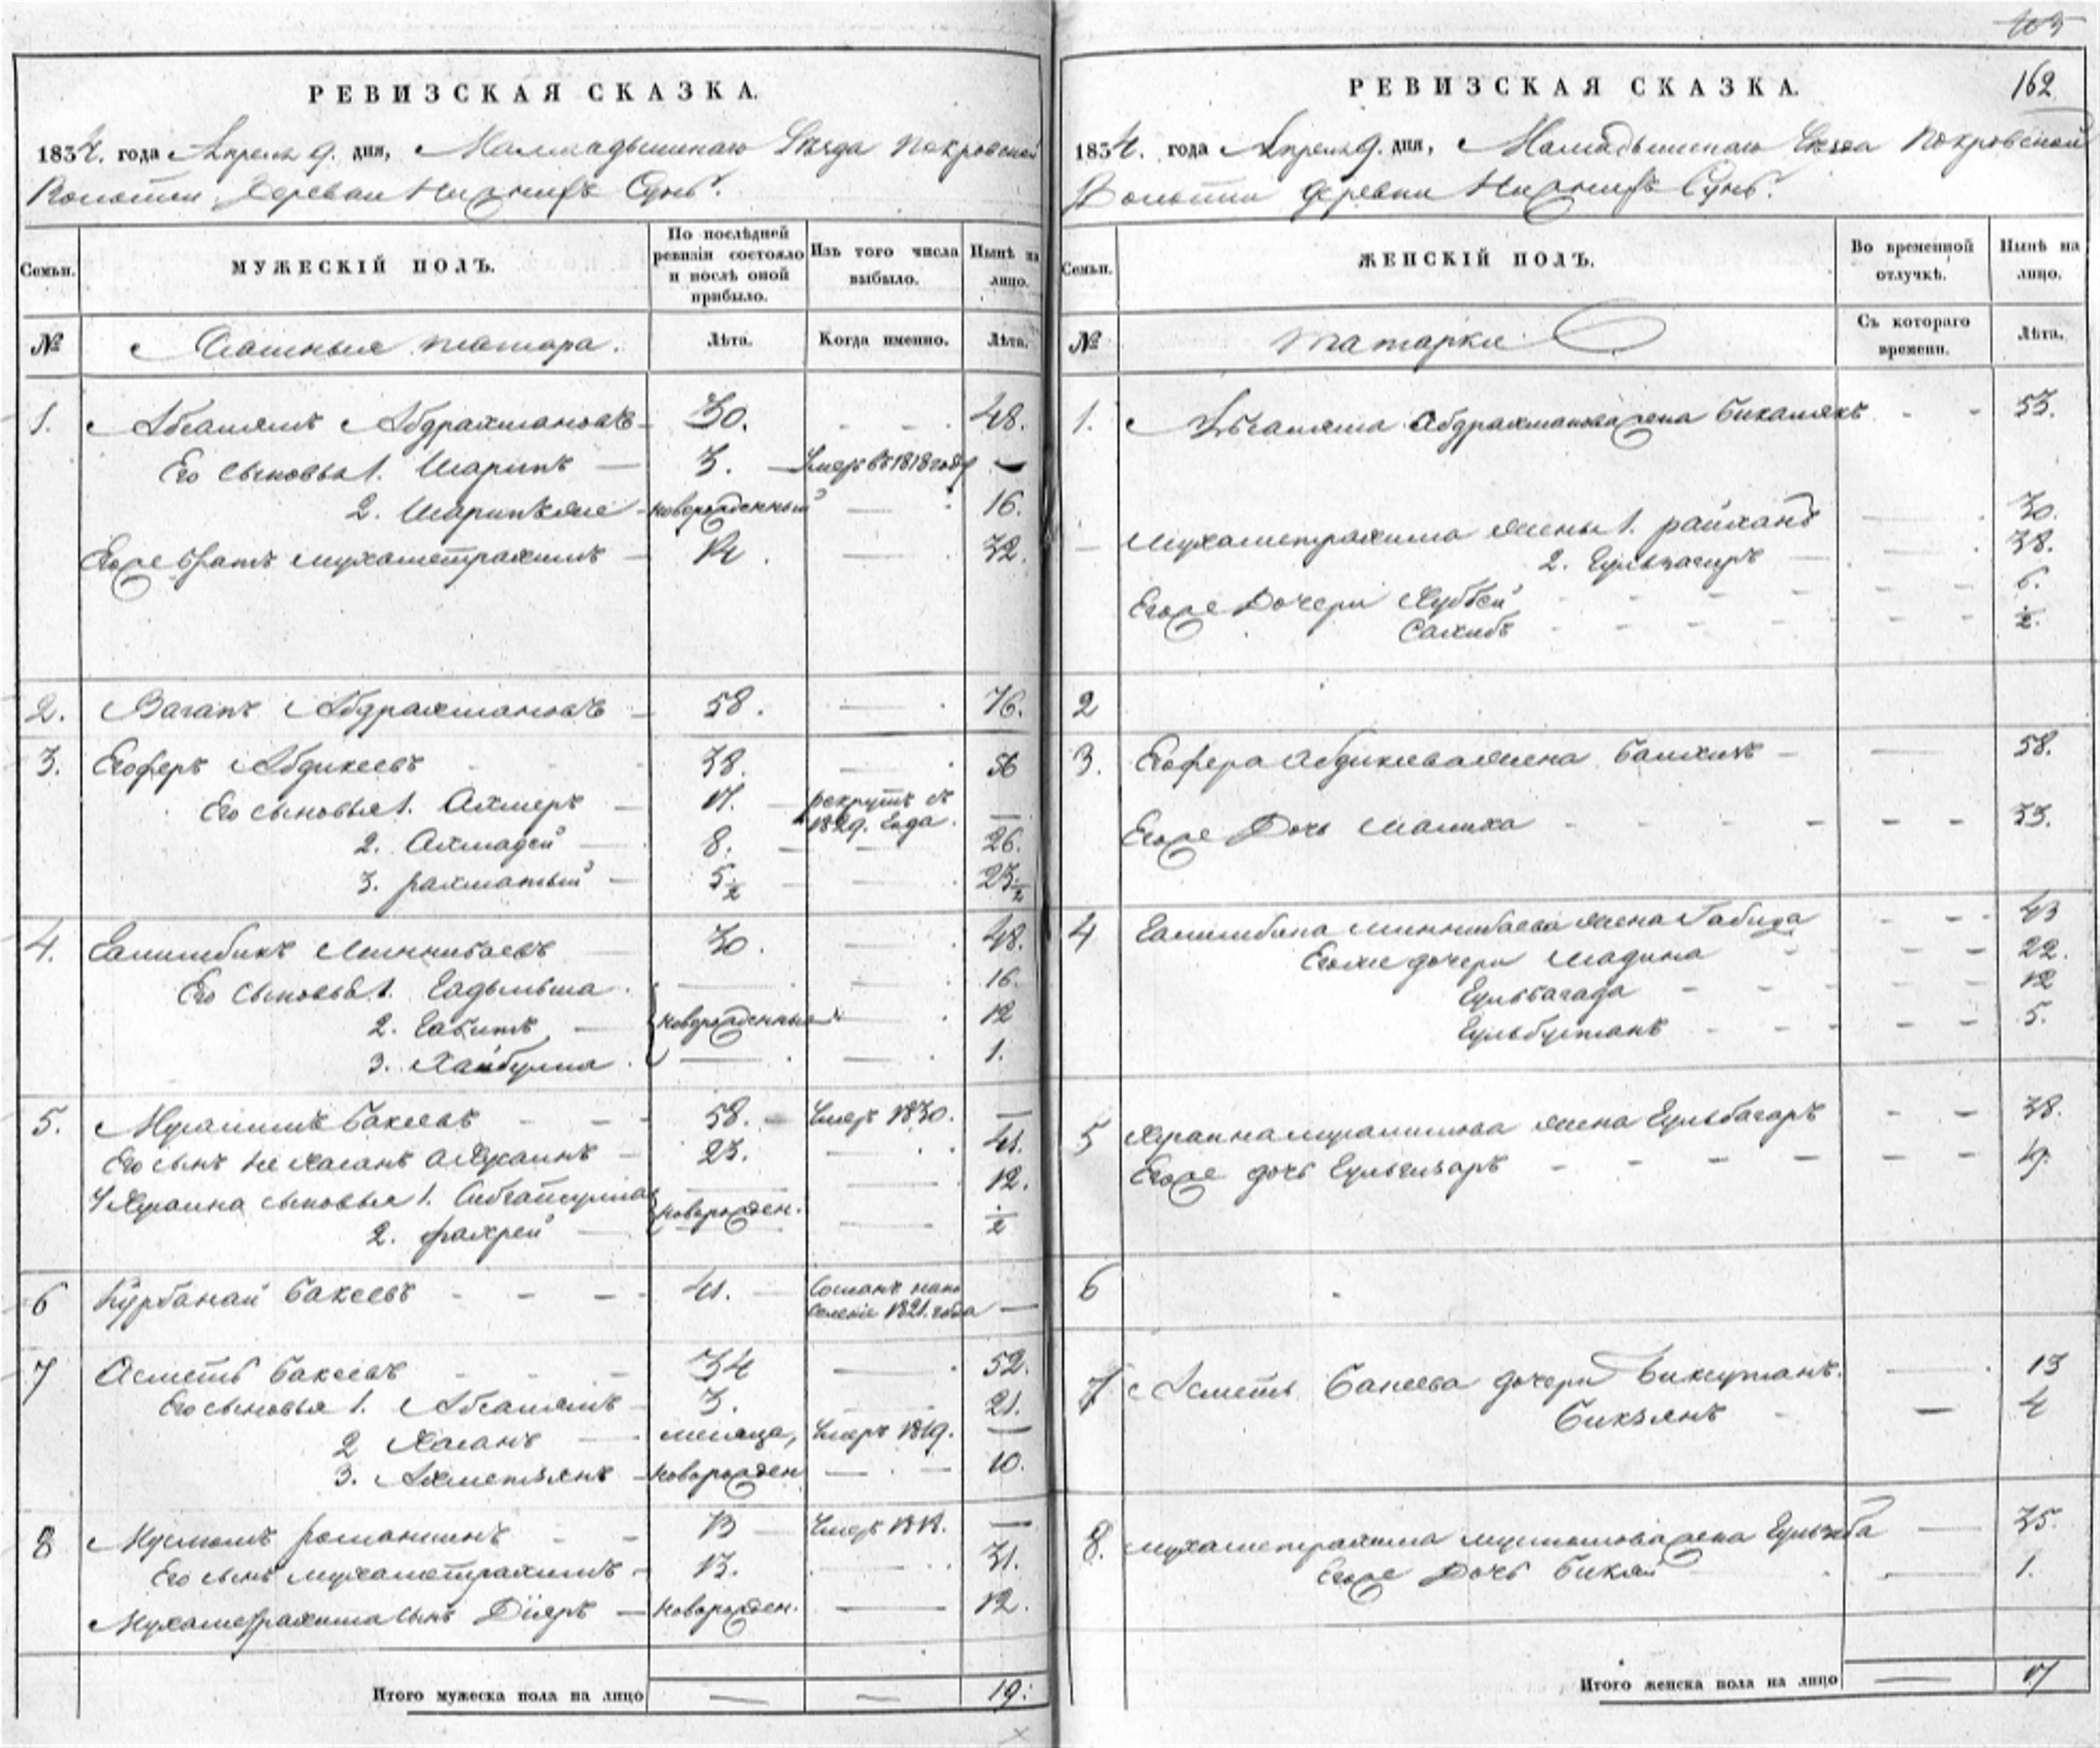 103
РЕВИЗСКАЯ СКАЗКА.
1834. года Апреля 9. дня, Мамадышскаго Уезда Покровской
Волости Деревни Нижнихъ Сунь.
Семьи.
МУЖЕСКІЙ ПОЛЪ.
По послѣдней ревизіи состояло и послѣ оной прибыло.
Изъ того числа выбыло.
Нынѣ на лицо.
№
Ясашныя татара.
Лѣта.
Когда именно.
Лѣта.
1. Абсалямъ Абдрахмановъ 30. 48.
Его сыновья 1. Шарипъ 3. Умеръ въ 1818 году —
2. Шарипъяне новорожденный 16.
Егоже братъ Мухаметрахимъ 14. 32.
2. Вагапъ Абдрахмановъ 58. 76.
3. Гоферъ Абдикеевъ 38. 56
Его сыновья 1. Ахмеръ 17. рекрутъ съ 1829. Года. —
2. Ахмадей 8. 26.
3. рахматый 5 1/2 23 1/2
4. Галимбикъ Миннибаевъ 30. 48.
Его сыновья 1. Гадыльша 16.
2. Габитъ новорожденныя 12
3. Хайбулла 1.
5. Мратимъ Бакеевъ 58. Умеръ 1830. —
Его сынъ не Хасанъ а Хузаинъ 23. 41.
У Хузаина сыновья 1. Сибгайтулла новорожден. 12.
2. фахрей 1/2
6 Курбанай Бакеевъ 41. Сосланъ напо селеніе 1821. года —
7 Асметь Бакеевъ 34 52.
Его сыновья 1. Абсалямъ 3. 21.
2 Хасанъ месяца, Умеръ 1819. —
3. Ахметьянъ новорожден 10.
8 Муслюмъ романчинъ 13 Умеръ 1818. —
Его сынъ Мухаметрахимъ 13. 31.
Мухаметрахима сынъ Діяръ новорожден. 12.
Итого мужеска пола на лицо — — 19.
РЕВИЗСКАЯ СКАЗКА.
162
1834. года Апреля 9. дня, Мамадышскаго Уезда Покровской
Волости деревни Нижнихъ Сунь.
Семьи.
ЖЕНСКІЙ ПОЛЪ.
Во временной отлучкѣ.
Нынѣ на лицо.
№
Татарки
Съ котораго времени.
Лѣта.
1. Абсаляма Абдрахманова жена Бикамякъ 53.
Мухаметрахима жены 1. райхана 30.
2. Гульчагиръ 38.
Егоже Дочери Хуббей 6.
Сахибъ 1/2.
2
3. Гофера Абдикеева жена Башхия 58.
Егоже Дочь Малиха 33.
4 Галимбика Миннибаева жена Габида 43
Егоже дочери Мадина 22.
Гульбагада 12
Гульбустанъ 5.
5 Хузаина Мратимова жена Гульбагаръ 38.
Егоже дочь Гульгизаръ 4.
6
7 Асметь Бакеева дочери Биксултанъ. 13
Бикзянъ 4
8. Мухаметрахима Муслюмова жена Гульхаба 35.
Егоже Дочь Бикяй 1.
Итого женска пола на лицо — 17